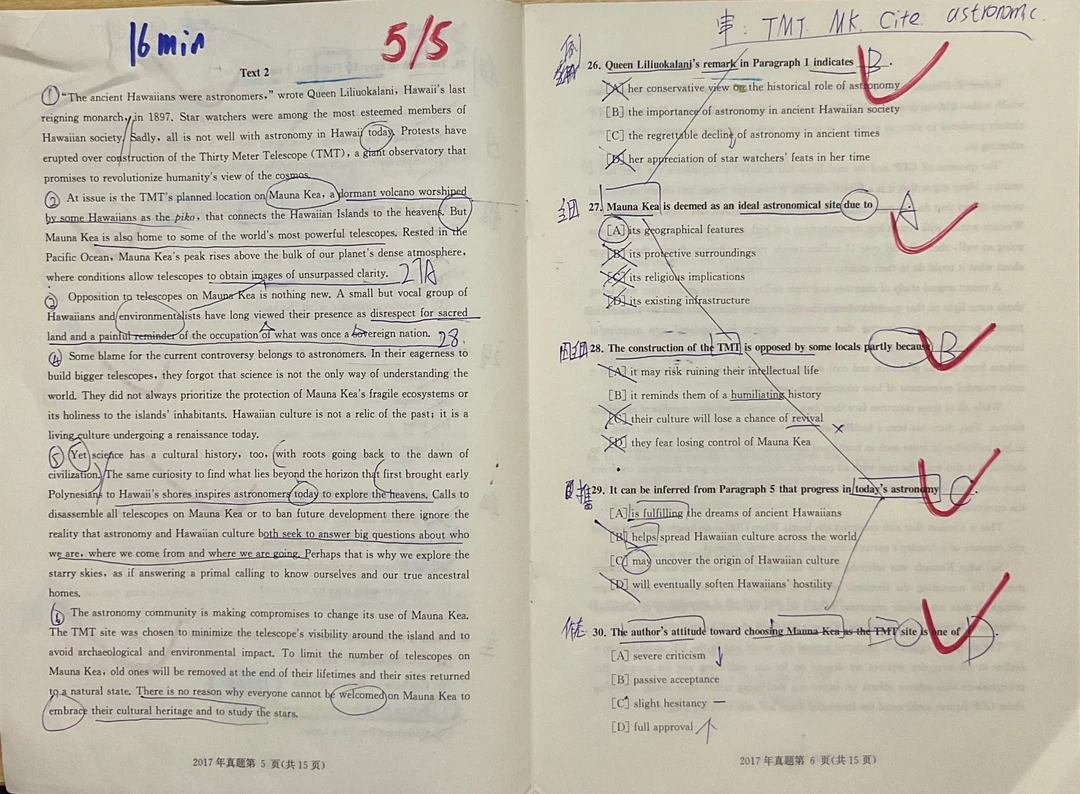 16 min
5/5
Text 2
① “The ancient Hawaiians were astronomers,” wrote Queen Liliuokalani, Hawaii's last
reigning monarch, in 1897. Star watchers were among the most esteemed members of
Hawaiian society. Sadly, all is not well with astronomy in Hawaii today. Protests have
erupted over construction of the Thirty Meter Telescope (TMT), a giant observatory that
promises to revolutionize humanity's view of the cosmos.
② At issue is the TMT's planned location on Mauna Kea, a dormant volcano worshiped
by some Hawaiians as the piko, that connects the Hawaiian Islands to the heavens. But
Mauna Kea is also home to some of the world's most powerful telescopes. Rested in the
Pacific Ocean, Mauna Kea's peak rises above the bulk of our planet's dense atmosphere,
where conditions allow telescopes to obtain images of unsurpassed clarity. 27A
③ Opposition to telescopes on Mauna Kea is nothing new. A small but vocal group of
Hawaiians and environmentalists have long viewed their presence as disrespect for sacred
land and a painful reminder of the occupation of what was once a sovereign nation. 28.
④ Some blame for the current controversy belongs to astronomers. In their eagerness to
build bigger telescopes, they forgot that science is not the only way of understanding the
world. They did not always prioritize the protection of Mauna Kea's fragile ecosystems or
its holiness to the islands' inhabitants. Hawaiian culture is not a relic of the past; it is a
living culture undergoing a renaissance today.
⑤ Yet science has a cultural history, too, with roots going back to the dawn of
civilization. The same curiosity to find what lies beyond the horizon that first brought early
Polynesians to Hawaii's shores inspires astronomers today to explore the heavens. Calls to
disassemble all telescopes on Mauna Kea or to ban future development there ignore the
reality that astronomy and Hawaiian culture both seek to answer big questions about who
we are, where we come from and where we are going. Perhaps that is why we explore the
starry skies, as if answering a primal calling to know ourselves and our true ancestral
homes.
⑥ The astronomy community is making compromises to change its use of Mauna Kea.
The TMT site was chosen to minimize the telescope's visibility around the island and to
avoid archaeological and environmental impact. To limit the number of telescopes on
Mauna Kea, old ones will be removed at the end of their lifetimes and their sites returned
to a natural state. There is no reason why everyone cannot be welcomed on Mauna Kea to
embrace their cultural heritage and to study the stars.
2017 年真题第 5 页(共 15 页)
串: TMT. MK. Cite astronomic.
26. Queen Liliuokalani's remark in Paragraph 1 indicates B.
[A] her conservative view on the historical role of astronomy
[B] the importance of astronomy in ancient Hawaiian society
[C] the regrettable decline of astronomy in ancient times
[D] her appreciation of star watchers' feats in her time
27. Mauna Kea is deemed as an ideal astronomical site due to A
[A] its geographical features
[B] its protective surroundings
[C] its religious implications
[D] its existing infrastructure
28. The construction of the TMT is opposed by some locals partly because B
[A] it may risk ruining their intellectual life
[B] it reminds them of a humiliating history
[C] their culture will lose a chance of revival
[D] they fear losing control of Mauna Kea
29. It can be inferred from Paragraph 5 that progress in today's astronomy C.
[A] is fulfilling the dreams of ancient Hawaiians
[B] helps spread Hawaiian culture across the world
[C] may uncover the origin of Hawaiian culture
[D] will eventually soften Hawaiians' hostility
30. The author's attitude toward choosing Mauna Kea as the TMT site is one of D.
[A] severe criticism ↓
[B] passive acceptance
[C] slight hesitancy —
[D] full approval ↑
2017 年真题第 6 页(共 15 页)